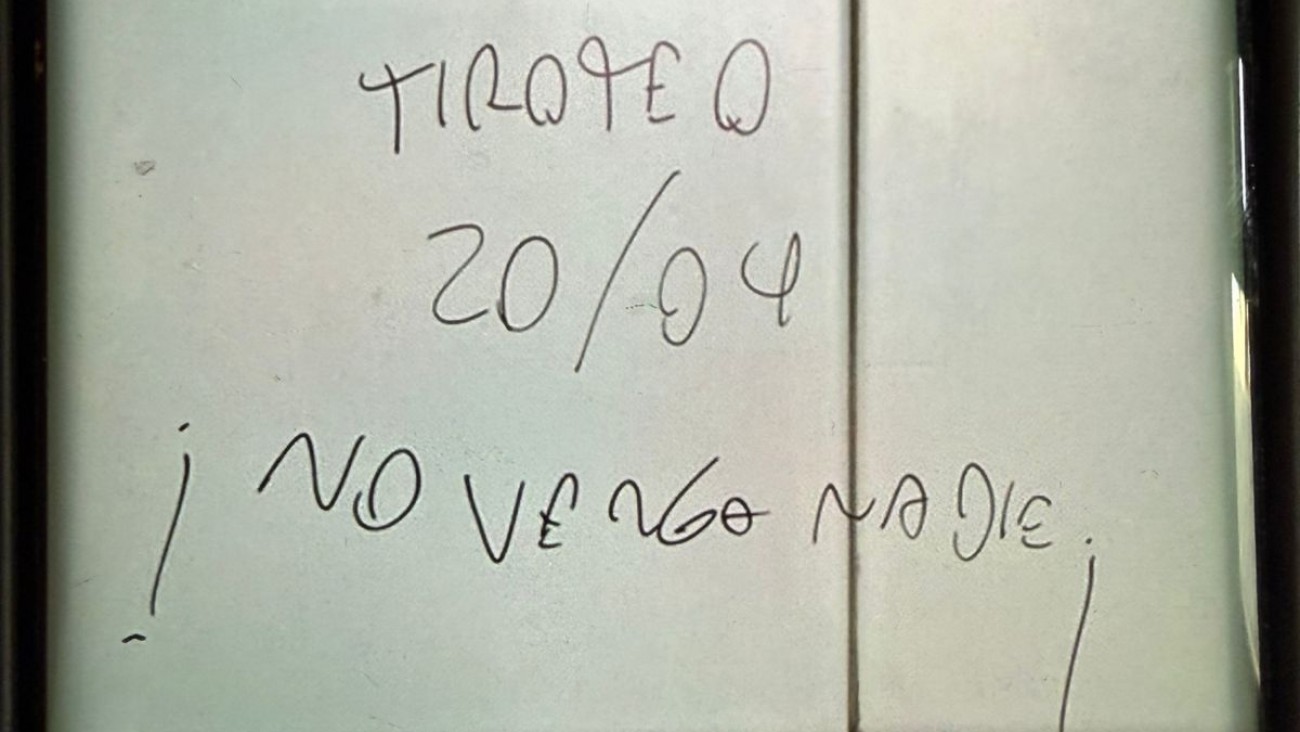 TIROTEO
20/04
¡NO VENGA NADIE¡